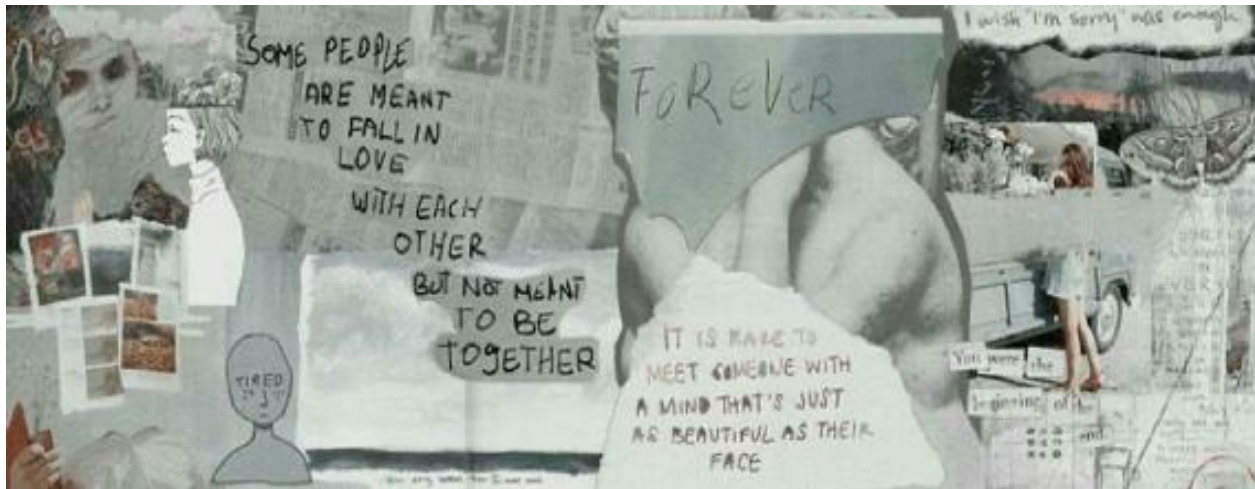 SOME PEOPLE
ARE MEANT
TO FALL IN
LOVE
WITH EACH
OTHER
BUT NOT MEANT
TO BE
TOGETHER
TIRED
FOREVER
IT IS RARE TO
MEET SOMEONE WITH
A MIND THAT'S JUST
AS BEAUTIFUL AS THEIR
FACE
I wish "I'm sorry" was enough
You were the
beginning of the
end